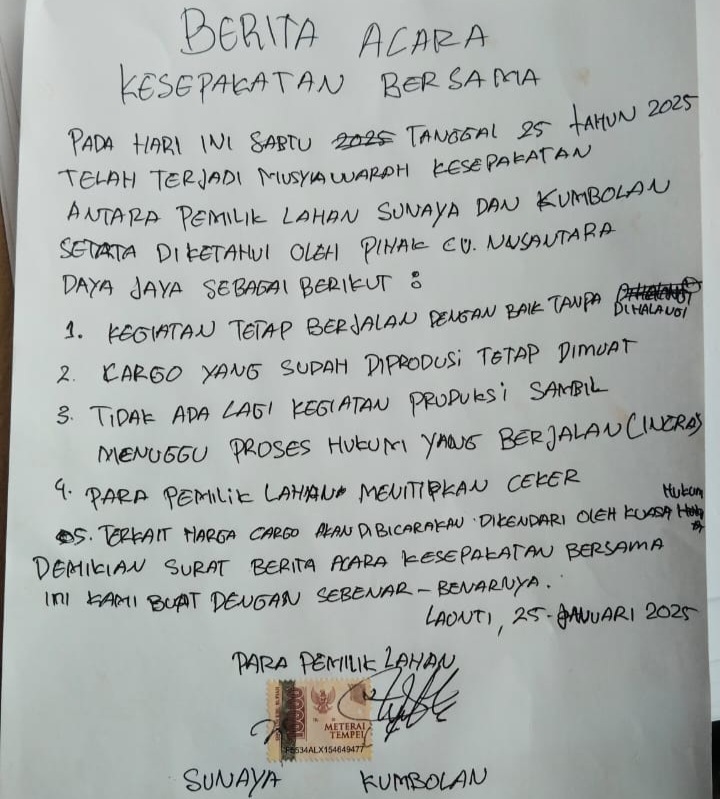 BERITA ACARA
KESEPAKATAN BERSAMA
PADA HARI INI SABTU 2025 TANGGAL 25 TAHUN 2025
TELAH TERJADI MUSYAWARAH KESEPAKATAN
ANTARA PEMILIK LAHAN SUNAYA DAN KUMBOLAN
SERTA DIKETAHUI OLEH PIHAK CV. NUSANTARA
DAYA JAYA SEBAGAI BERIKUT :
1. KEGIATAN TETAP BERJALAN DENGAN BAIK TANPA DIHALANGI
2. CARGO YANG SUDAH DIPRODUSI TETAP DIMUAT
3. TIDAK ADA LAGI KEGIATAN PRODUKSI SAMBIL
MENUGGU PROSES HUKUM YANG BERJALAN (INCRA)
4. PARA PEMILIK LAHAN MENITIPKAN CEKER
5. TERKAIT HARGA CARGO AKAN DIBICARAKAN DIKENDARI OLEH KUASA Hukum
DEMIKIAN SURAT BERITA ACARA KESEPAKATAN BERSAMA
INI KAMI BUAT DENGAN SEBENAR-BENARNYA.
LAONTI, 25-JANUARI 2025
PARA PEMILIK LAHAN
10000
METERAI
TEMPEL
534ALX154649477
SUNAYA KUMBOLAN